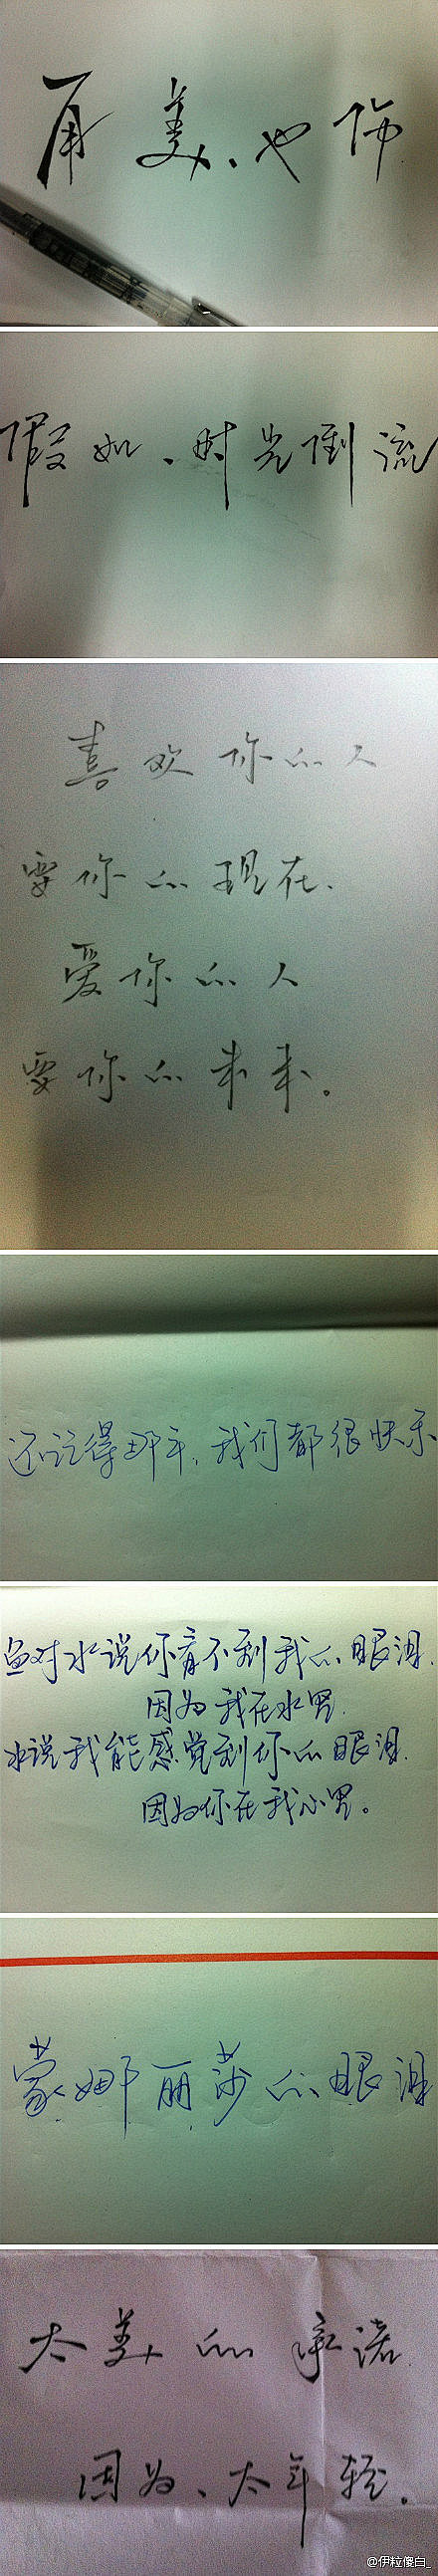 再美、也
假如、时光倒流
喜欢你的人
要你的现在.
爱你的人
要你的未来。
还记得那年,我们都很快乐
鱼对水说你看不到我的眼泪.
因为我在水里.
水说我能感觉到你的眼泪.
因为你在我心里。
蒙娜丽莎的眼泪
太美的承诺
因为、太年轻。
@伊粒傻白_